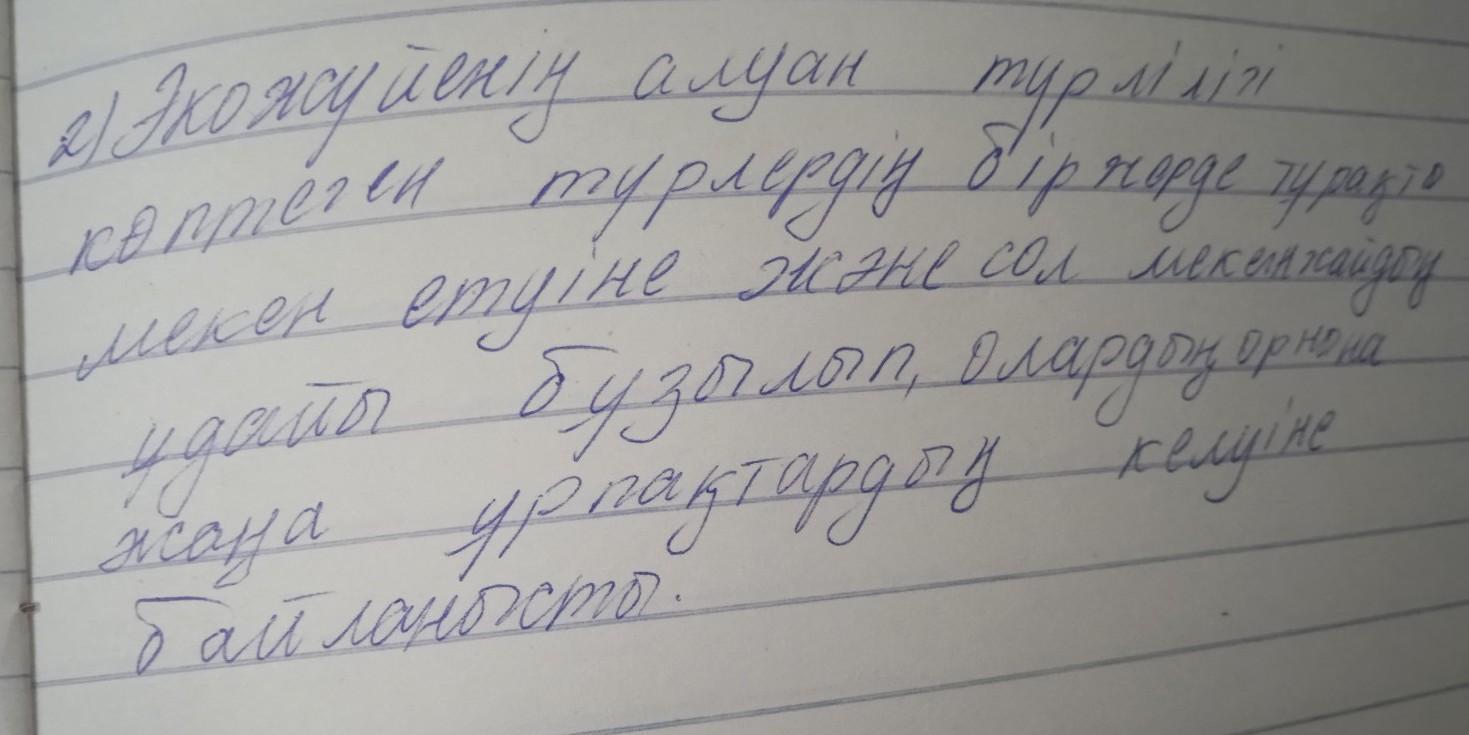 2) Экожүйенің алуан түрлілігі
көптеген түрлердің бір жерде тұрақты
мекен етуіне және сол мекенжайдың
ұдайы бұзылып, олардың орнына
жаңа ұрпақтардың келуіне
байланысты.